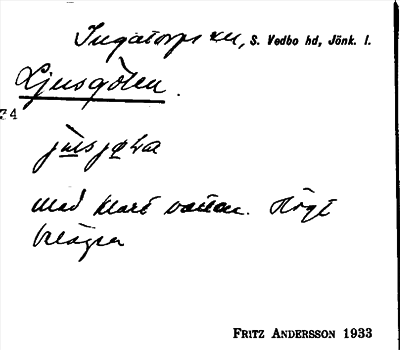 Ingatorps sn, S. Vedbo hd, Jönk. l.
Ljusgölen.
74
med klart vatten. Högt
belägen
FRITZ ANDERSSON 1933